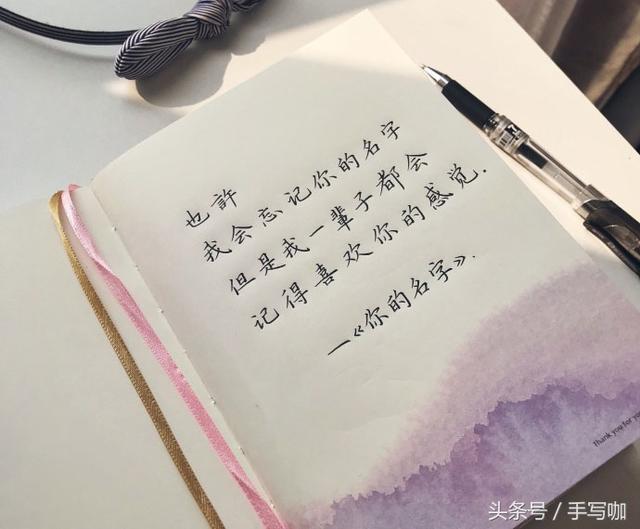 也許
我会忘记你的名字
但是我一辈子都会
记得喜欢你的感觉.
—《你的名字》.
Thank you for
头条号 / 手写咖